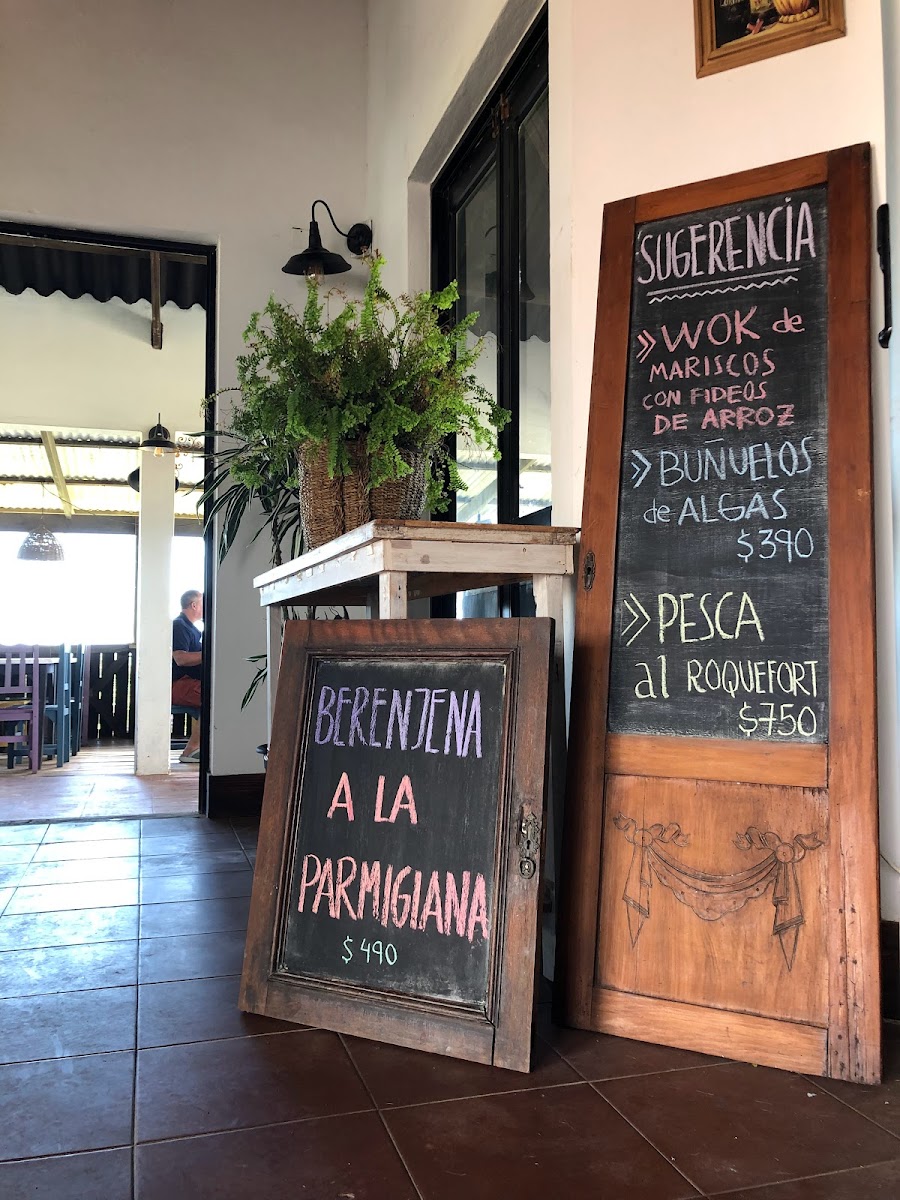 SUGERENCIA
» WOK de
MARISCOS
CON FIDEOS
DE ARROZ
» BUÑUELOS
de ALGAS
$390
» PESCA
al ROQUEFORT
$750
BERENJENA
A LA
PARMIGIANA
$490